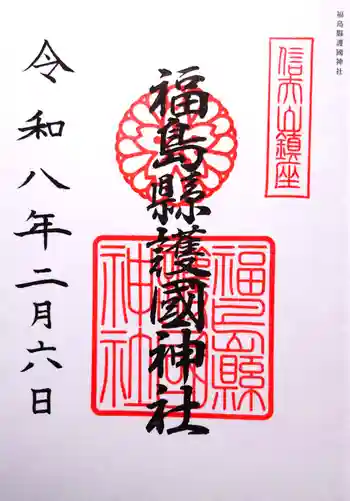 福島縣護國神社
信夫山鎮座
福島縣護國神社
福島縣護國神社
令和八年二月六日